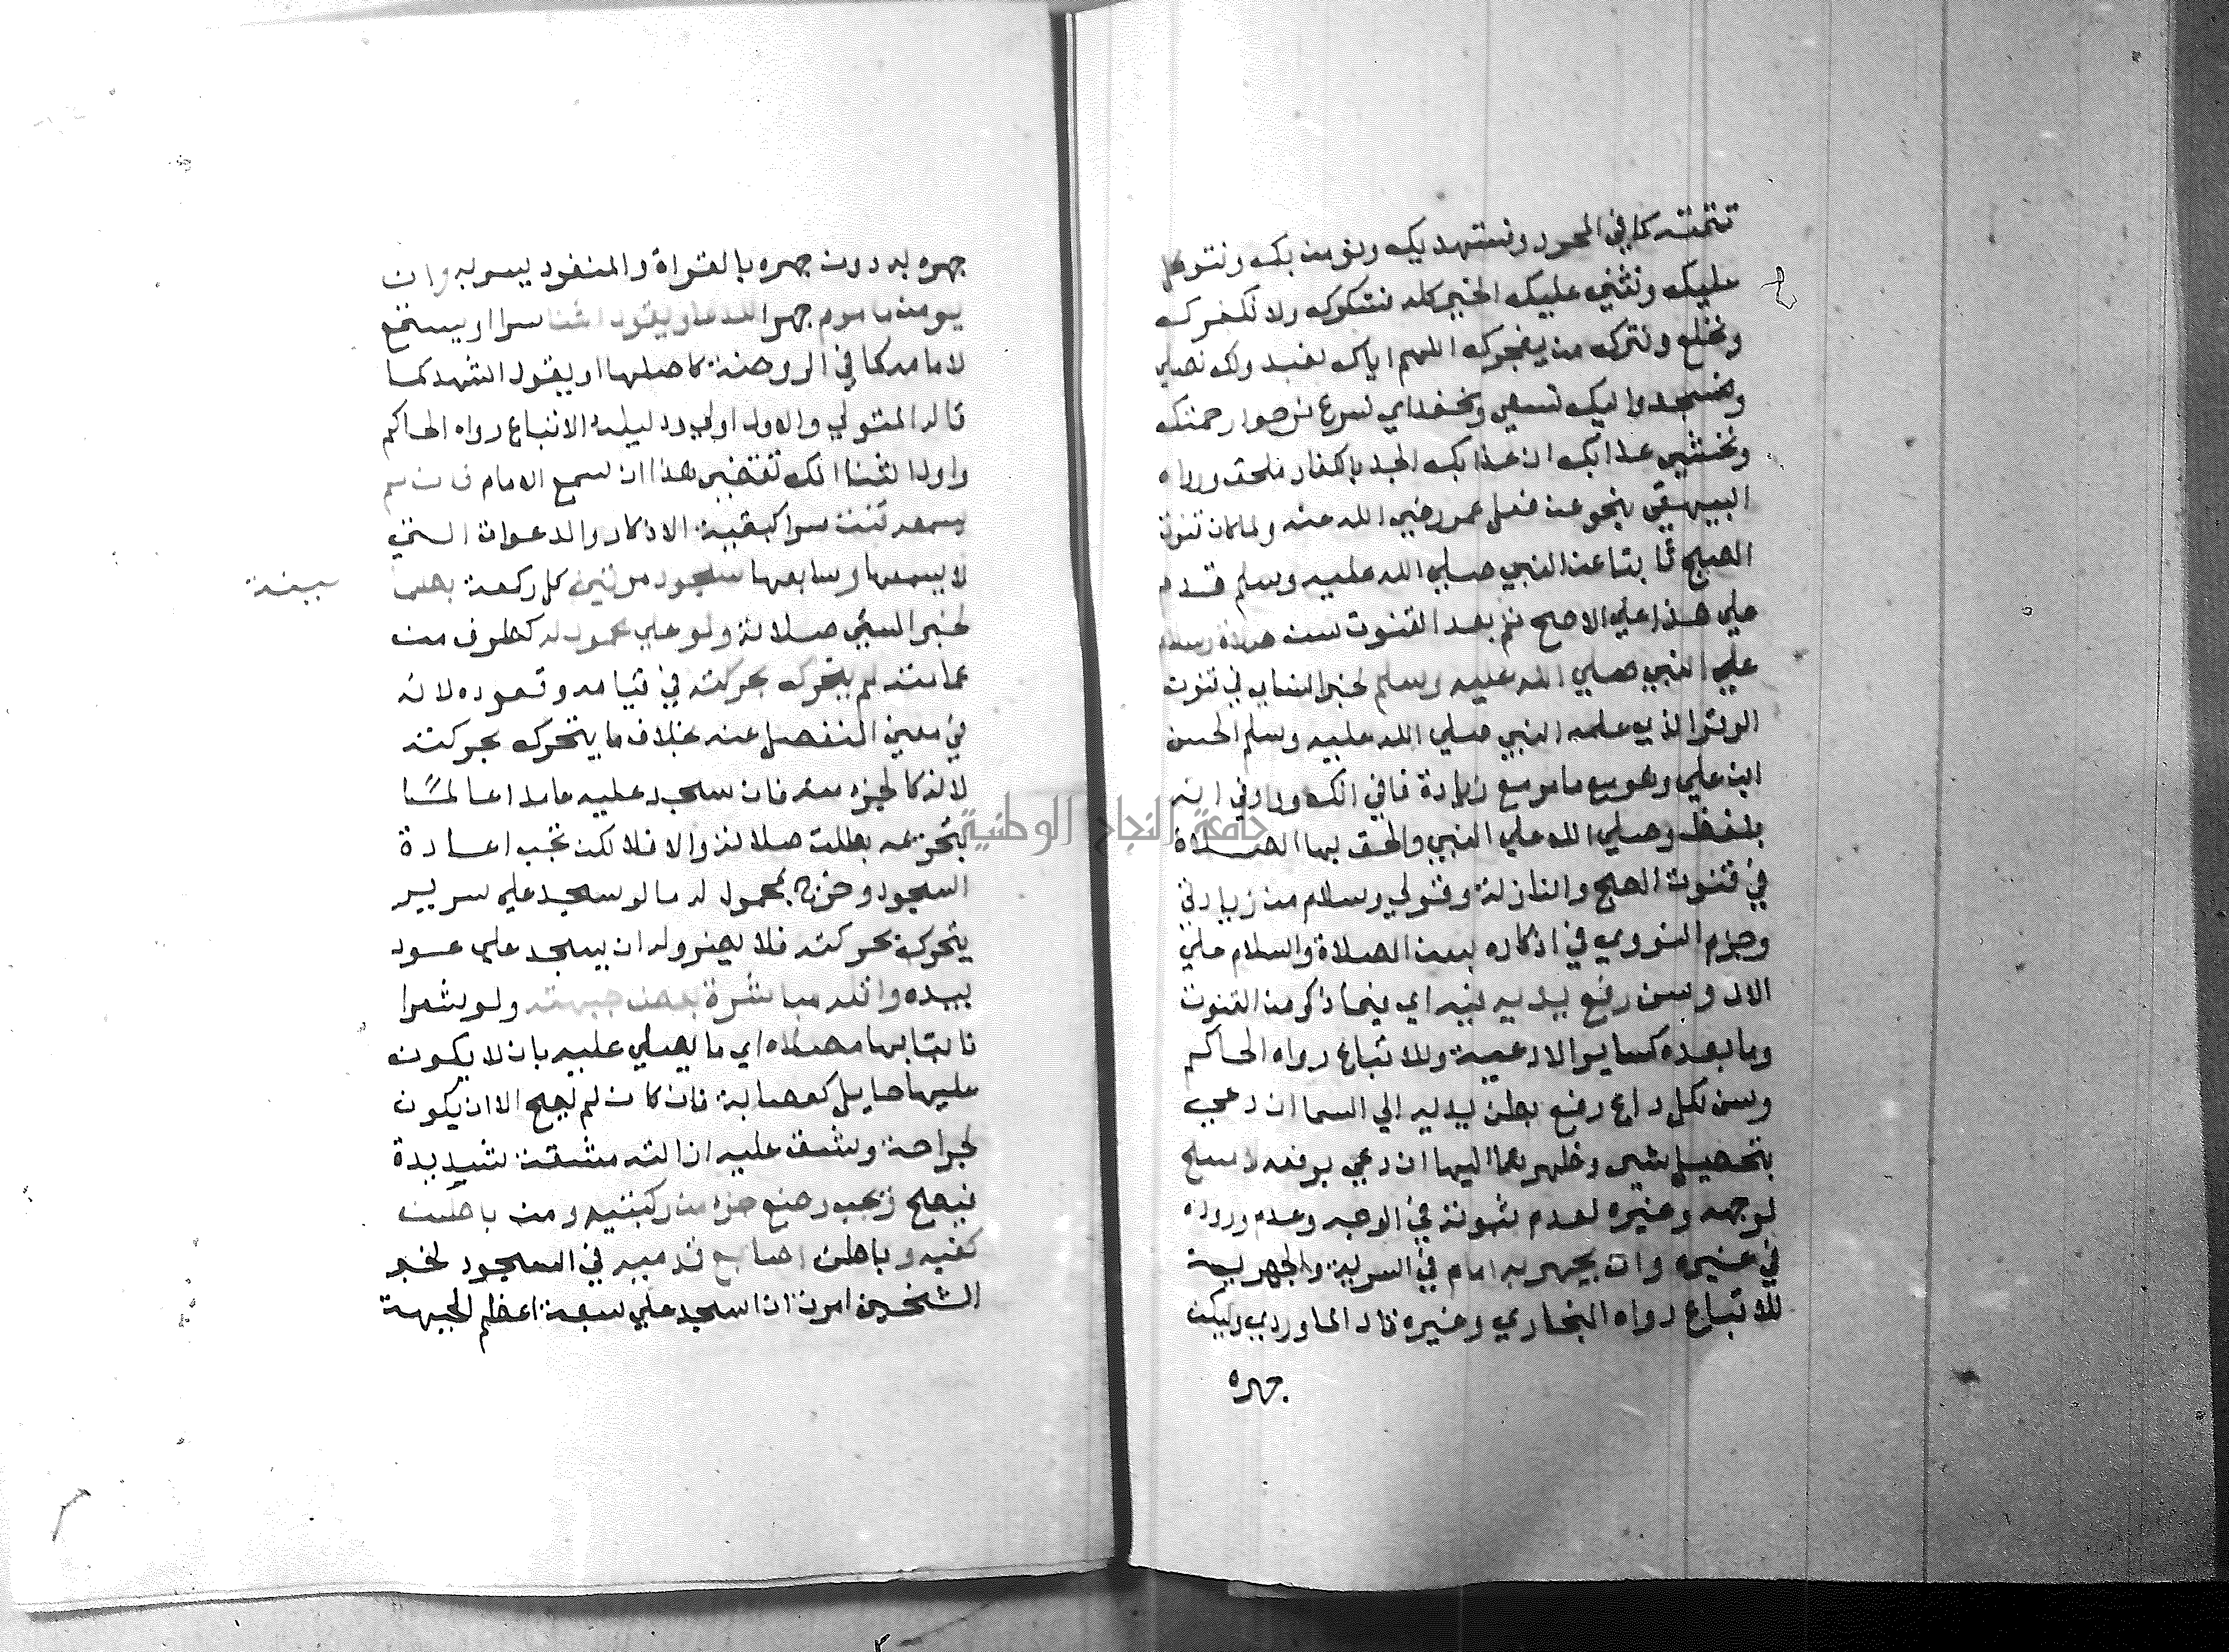 تتمته كما في المحرر ونستهديك ونومن بك ونتوكل
عليك ونثني عليك الخير كله نشكرك ولا نكفرك
ونخلع ونترك من يفجرك اللهم اياك نعبد ولك نصلي
ونسجد واليك نسعي ونحفد اي نسرع نرجوا رحمتك
ونخشي عذابك ان عذابك الجد بالكفار ملحق ورواه
البيهقي بنحو عن فعل عمر رضي الله عنه ولما كان قنوت
الصبح ثابتا عن النبي صلي الله عليه وسلم قدم
علي هذا علي الاصح ثم بعد القنوت سن صلاة وسلام
علي النبي صلي الله عليه وسلم لخبر النساي في قنوت
الوتر الذي علمه النبي صلي الله عليه وسلم الحسن
ابن علي وهو مع ما مر مع زيادة فا في انك وواو في انه
بلفظ وصلي الله علي النبي والحق بها الصلاة
في قنوت الصبح والنازلة وقولي وسلام من زيادتي
وجزم النووي في اذكاره بسن الصلاة والسلام علي
الال وسن رفع يديه فيه اي فيما ذكر من القنوت
وما بعده كساير الادعية وللاتباع رواه الحاكم
وسن لكل داع رفع بطن يديه الي السما ان دعي
بتحصيل شي وظهرهما اليها ان دعي برفعه لا مسح
لوجهه وغيره لعدم ثبوته في الوجه وعدم وروده
في غيره وان يجهر به امام في السرية والجهرية
للاتباع رواه البخاري وغيره قال الماوردي وليكن
جهره
جهره به دون جهره بالقراة والمنفرد يسر به وان
يومن ماموم جهرا للدعا ويقول الثنا سرا او يستمع
لامامه كما في الروضة كاصلها او يقول اشهد كما
قاله المتولي والاول اولي ودليله الاتباع رواه الحاكم
واول الثنا انك تقضي هذا ان سمع الامام فان لم
يسمعه قنت سرا كبقية الاذكار والدعوات التي
لا يسمعها وسابعها سجود مرتين كل ركعة
لخبر المسي صلاته ولو علي محمول له كطرف من
عمامته لم يتحرك بحركته في قيامه وقعوده لانه
في معني المنفصل عنه بخلاف ما يتحرك بحركته
لانه كالجزء منه فان سجد عليه عامدا عالما
بتحريمه بطلت صلاته والا فلا لكن تجب اعادة
السجود وخرج بمحمول له ما لو سجد علي سرير
يتحرك بحركته فلا يضر وله ان يسجد علي عود
بيده واقله مباشرة بعض جبهته ولو شعرا
نابتا بها مصلاه اي ما يصلي عليه بان لا يكون
عليها حايل كعصابة فان كان لم يصح الا ان يكون
لجراحة وشق عليه ازالته مشقة شديدة
فيصح وتجب وضع جزء من ركبتيه ومن باطن
كفيه وباطن اصابع قدميه في السجود لخبر
الشيخين امرت ان اسجد علي سبعة اعظم الجبهة
جامعة النجاح الوطنية